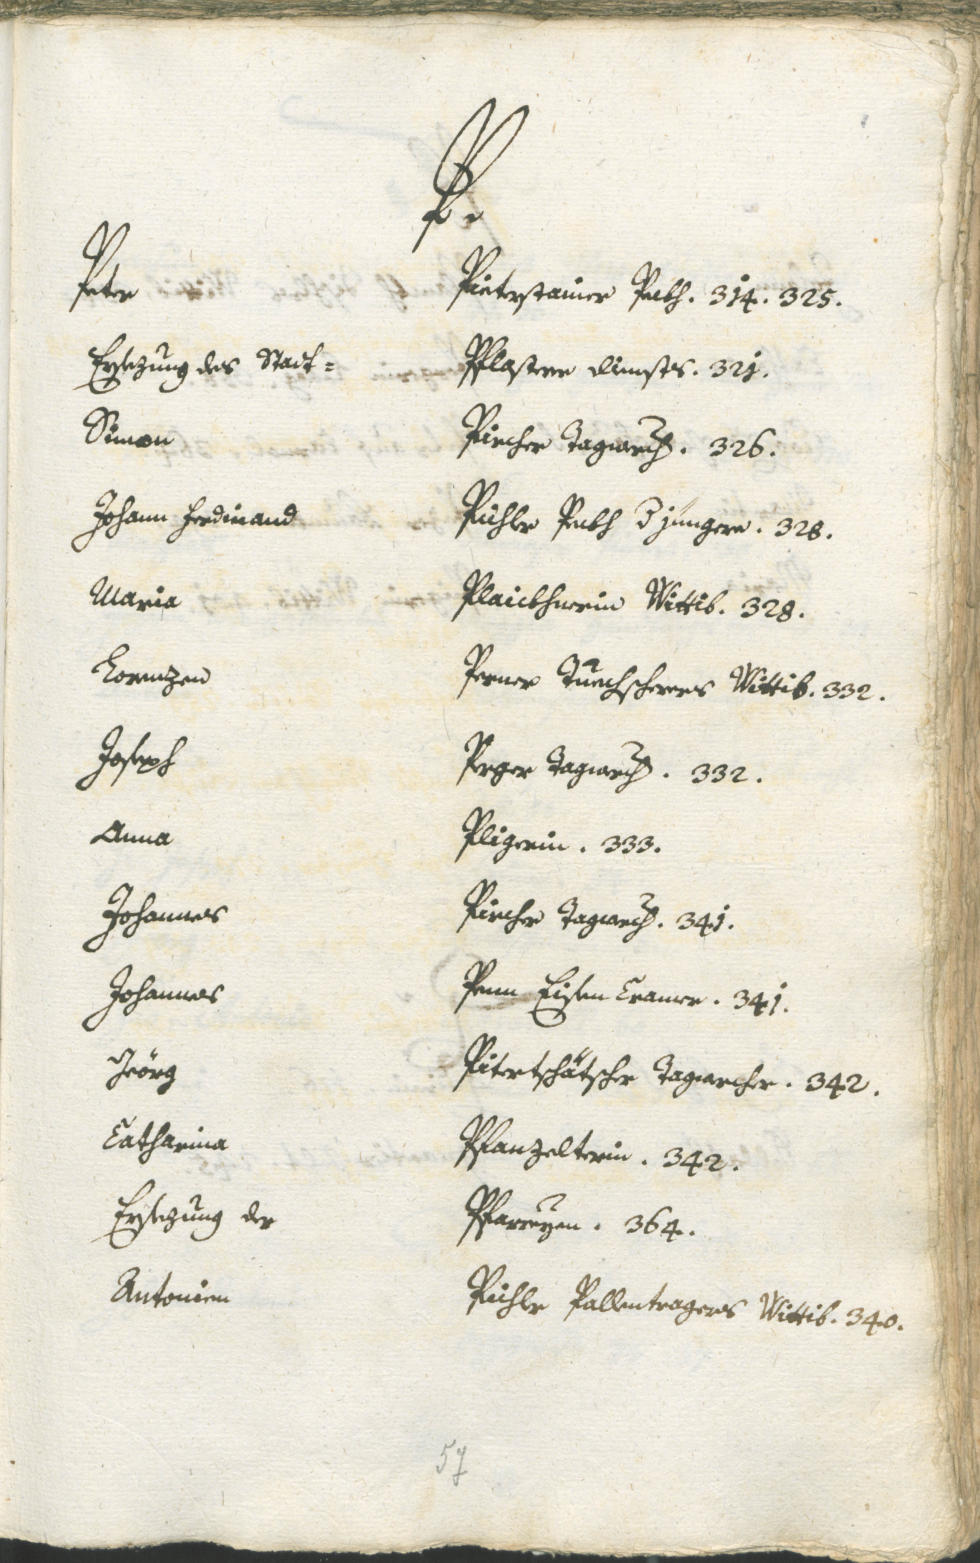 P.
Peter Pieterstainer Peckh. 314. 325.
Ersezung des Statt= Pflasterer dienstes. 321.
Simon Pircher Tagwerch. 326.
Johann Ferdinand Pichler Peckh jüngere. 328.
Maria Plaickhnerin Wittib. 328.
Lorenzen Perner Tuechscherers Wittib. 332.
Joseph Perger Tagwerch. 332.
Anna Pligerin. 333.
Johannes Pircher Tagwerch. 341.
Johannes Penn Eisen Cramer. 341.
Jeörg Pitertschätscher Tagwercher. 342.
Catharina Pflanzelterin. 342.
Ersezung der Pfarreyen. 364.
Antonien Pichler Pallentragers Wittib. 340.
57